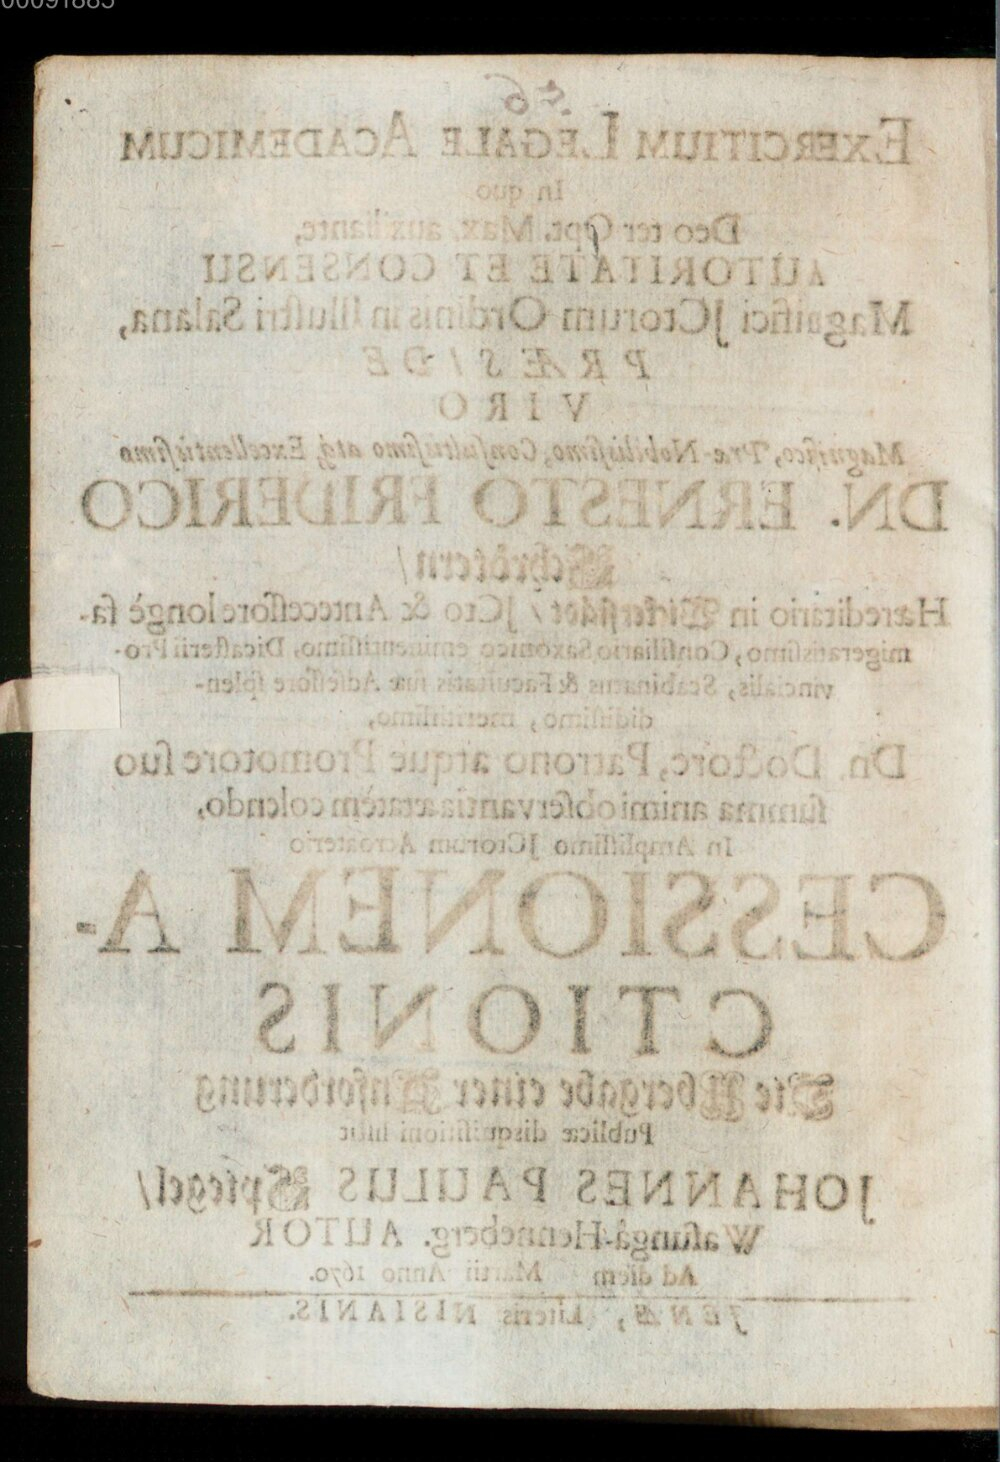 00091885
56
EXERCITIUM LEGALE ACADEMICUM
In quo
Deo ter Opt. Max. auxiliante,
AUTORITATE ET CONSENSU
Magnifici JCtorum Ordinis in Illustri Salana,
PRÆSIDE
VIRO
Magnifico, Præ-Nobilissimo, Consultissimo atq; Excellentissimo
DN. ERNESTO FRIDERICO
Schrötern/
Hæreditario in Wickerstädt/ JCto & Antecessore longè fa-
migeratissimo, Consiliario Saxonico eminentissimo, Dicasterii Pro-
vincialis, Scabinatus & Facultatis suæ Adsessore splen-
didissimo, meritissimo,
Dn. Doctore, Patrono atque Promotore suo
summa animi observantia ætatèm colendo,
In Amplissimo JCtorum Acroaterio
CESSIONEM A-
CTIONIS
Die Ubergabe einer Anforderung
Publicæ disquisitioni sistit
JOHANNES PAULUS Spiegel/
Wasungâ-Henneberg. AUTOR
Ad diem Martii Anno 1670.
JENÆ, Literis NISIANIS.